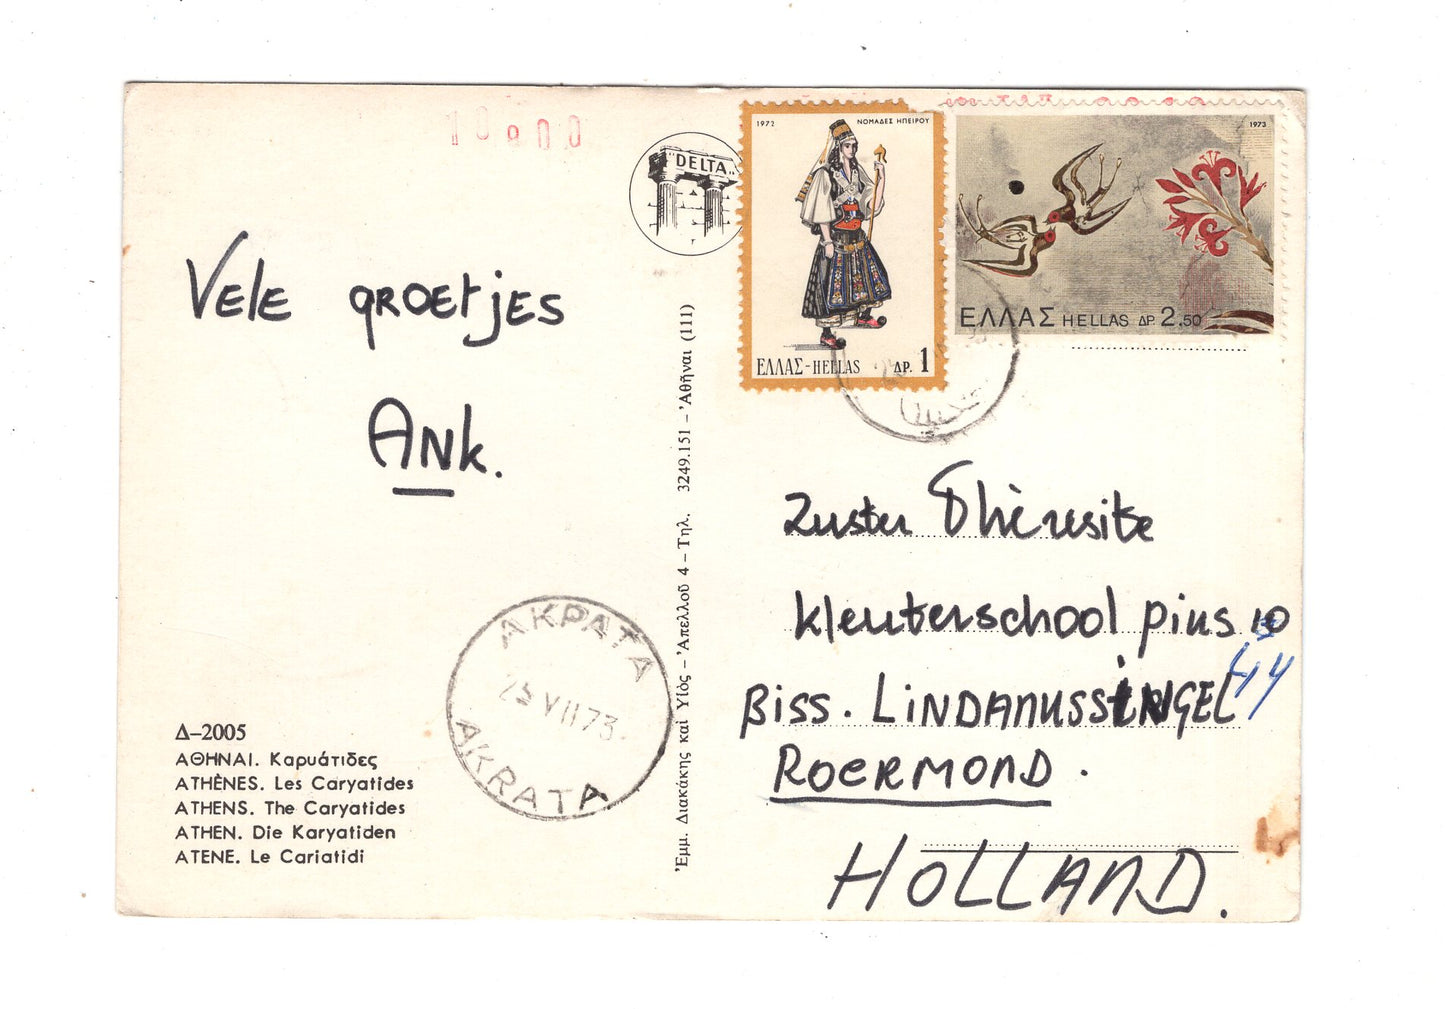 10900
"DELTA"
1972 ΝΟΜΑΔΕΣ ΗΠΕΙΡΟΥ
ΕΛΛΑΣ-HELLAS ΔΡ. 1
1973
ΕΛΛΑΣ HELLAS ΔΡ 2.50
Vele groetjes
Ank.
AKPATA
25 VII 73
AKRATA
Δ-2005
ΑΘΗΝΑΙ. Καρυάτιδες
ATHÈNES. Les Caryatides
ATHENS. The Caryatides
ATHEN. Die Karyatiden
ATENE. Le Cariatidi
Ἐμμ. Διακάκης καὶ Υἱὸς - Ἀπελλοῦ 4 - Τηλ. 3249.151 - Ἀθῆναι (111)
Zuster Thèresite
Kleuterschool Pius 10
Biss. LINDANUSSINGEL
ROERMOND.
HOLLAND.